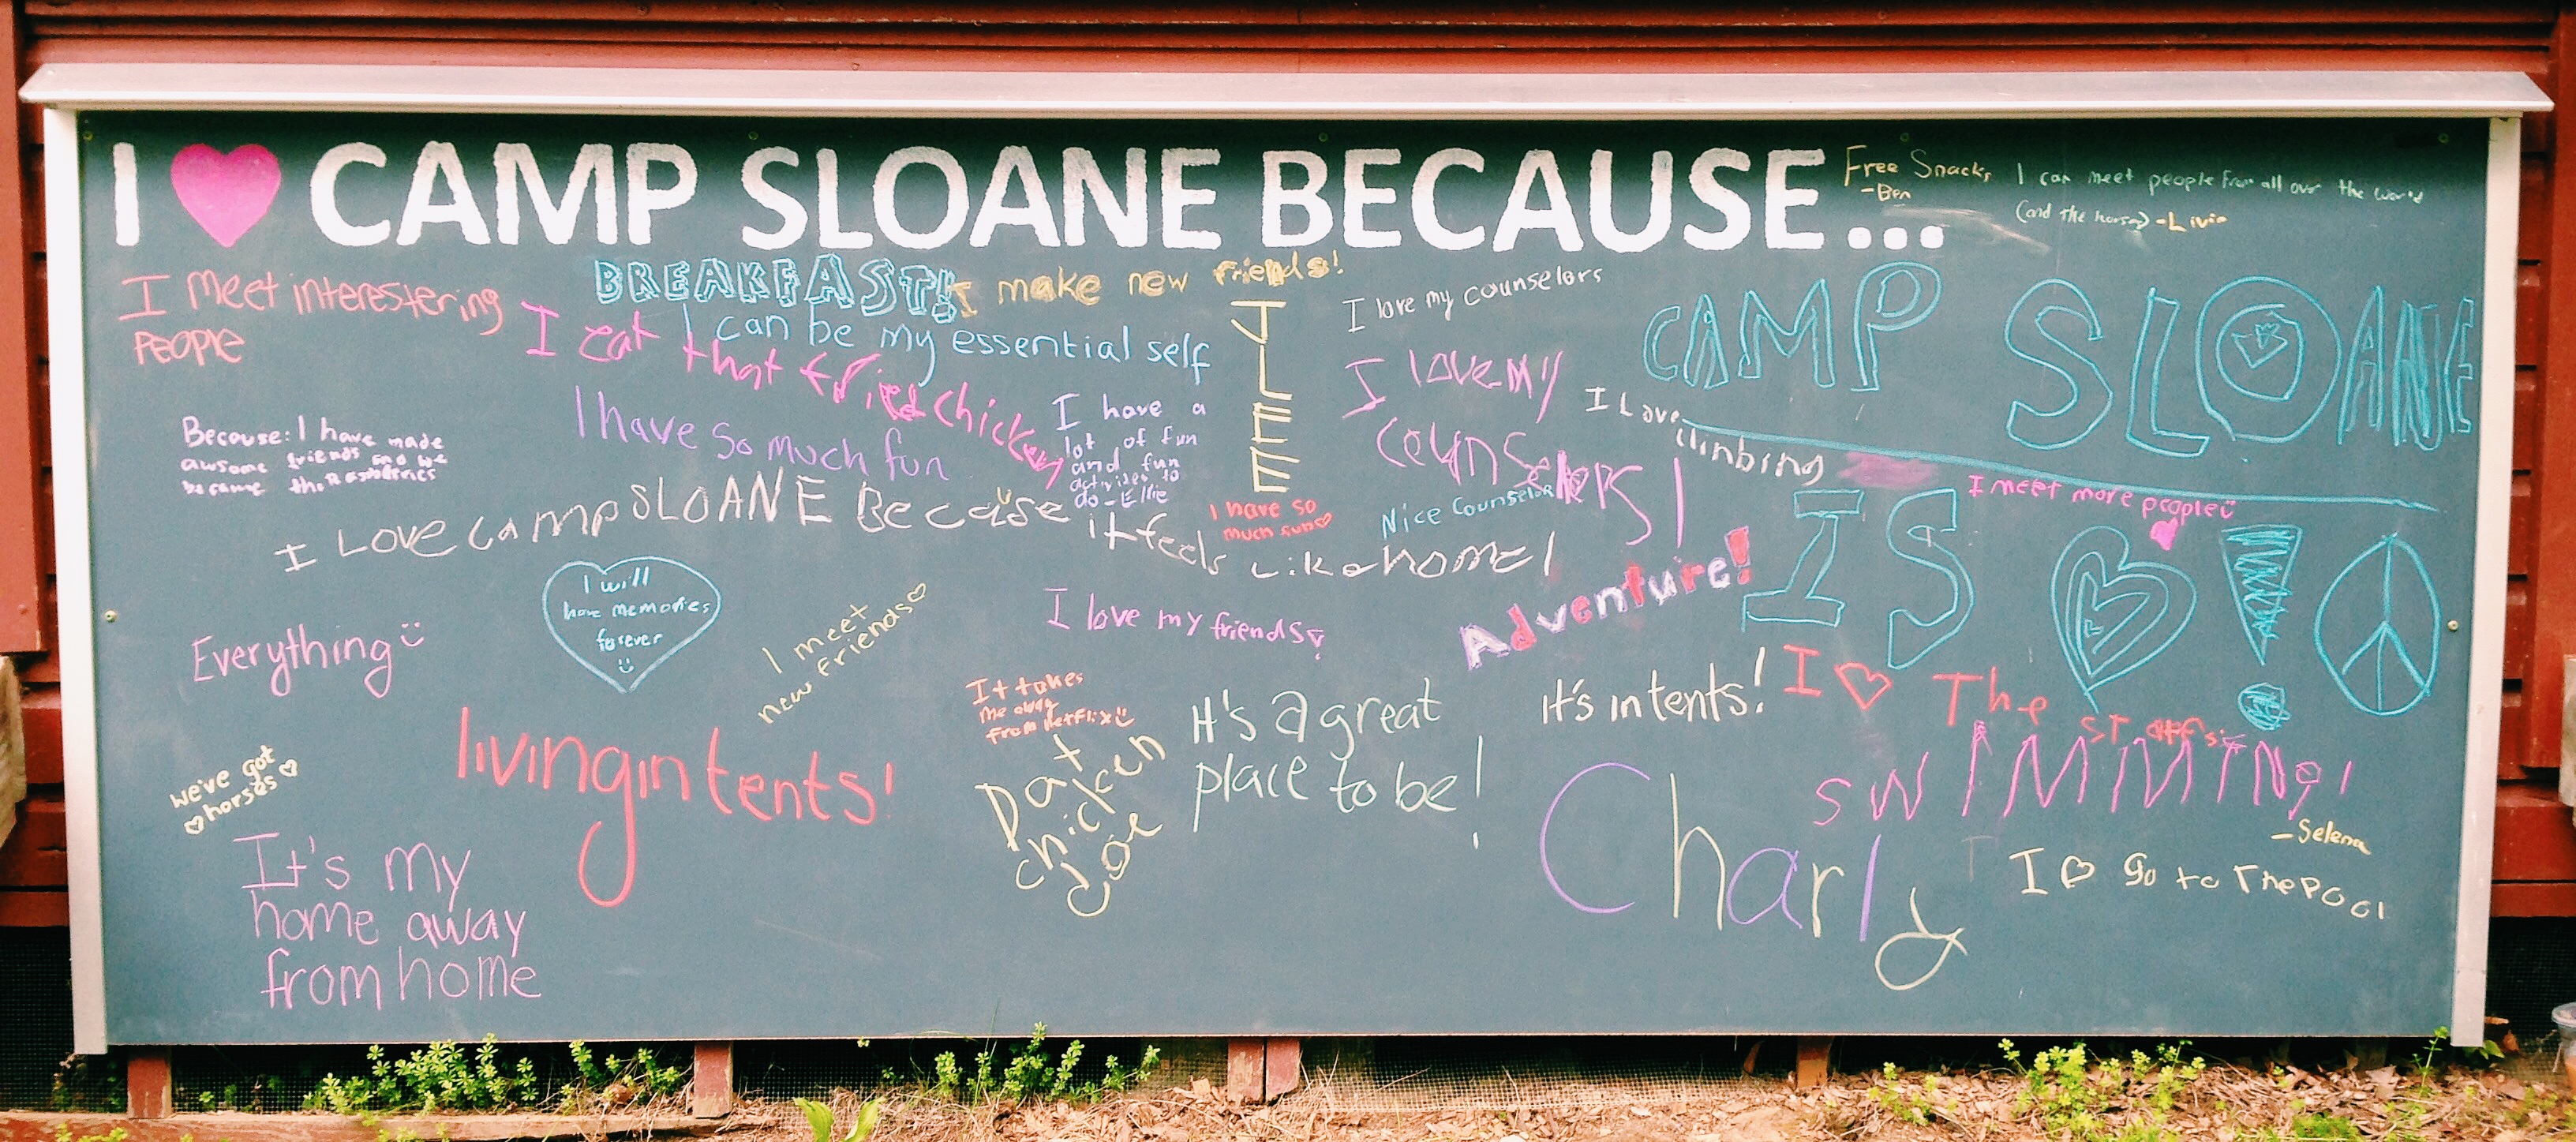 I ♥ CAMP SLOANE BECAUSE...
Free Snacks
-Ben
I can meet people from all over the world
(and the horses) -Livia
I meet interestering
People
BREAKFAST!
I make new friends!
I can be my essential self
I eat that fried chicken
I have so much fun
I have a
lot of fun
and fun
activities to
do - Ellie
JLEE
I have so
much fun♡
I love my counselors
I love my
counselors!
Nice Counselors
I Love
climbing
CAMP SLOANE
IS ♡ !
I meet more people
Because: I have made
awsome friends and we
became
I LOVE camp SLOANE Because it feels Like home!
Everything
I will
have memories
forever
I meet
new friends♡
I love my friends
Adventure!
It's intents!
I ♡ The staffs
SWIMMING!
-Selena
I ♡ go to The Pool
It takes
me away
from Netflix
Dat
chicken
doe
It's a great
place to be!
Charly
we've got
♡horses♡
living in tents!
It's my
home away
from home